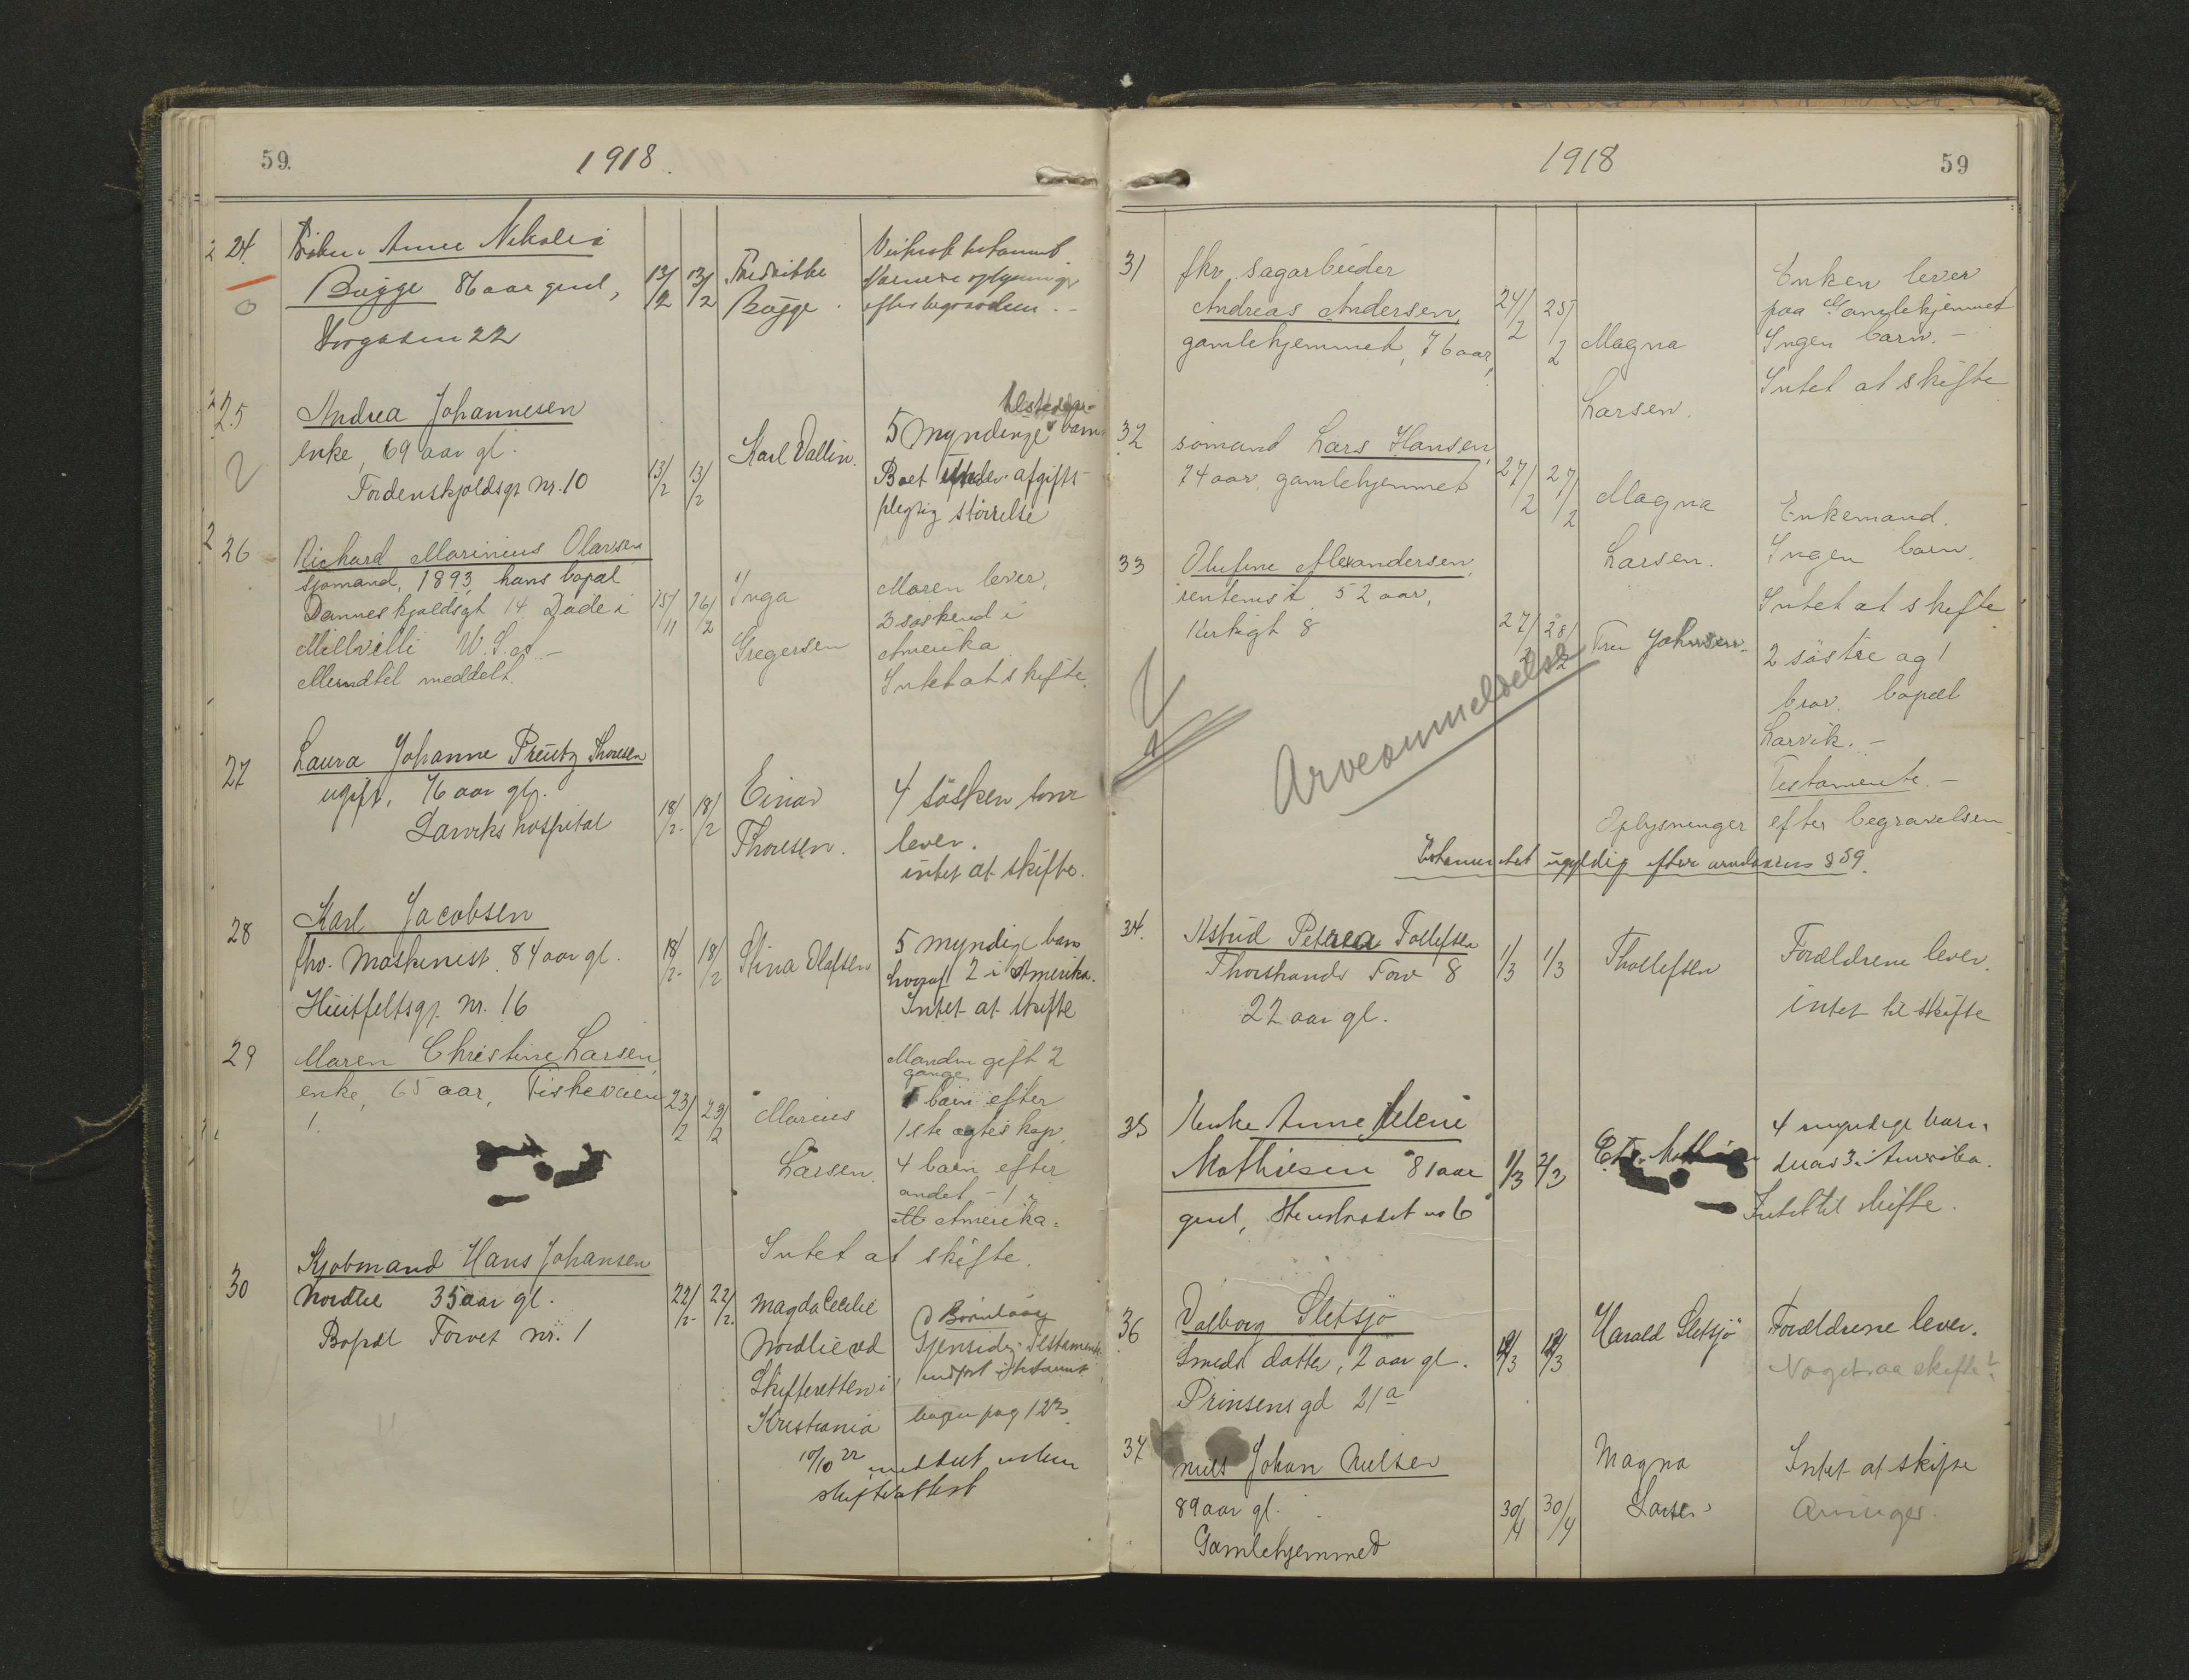 59.
1918.
24. Anne Nikolea
Bugge 86 aar gml,
13/2 13/2
Fredrikke
Bugge.
efter begravelsen.
22
25 Andrea Johannesen
enke, 69 aar gl.
Tordenskjoldsgt Nr. 10
13/2 13/2
Karl Dallin.
5 Myndige barn
Boet under afgifts-
plegtig størrelse
26 Richard Marinius Olavsen
sjømand, 1893, hans bopæl
Danneskjoldsgt 14. Døde i
Millvilli U.S.A. –
meddelt.
15/11 26/2
Inga
Gregersen
Moren lever,
3 søskend i
Amerika
Intet at skifte.
27 Laura Johanne Preutz Thoresen
ugift, 76 aar gl.
Larviks hospital
18/2 18/2
Einar
Thoresen.
4 søsken som
lever.
intet at skifte.
28 Karl Jacobsen
fhv. Maskinist. 84 aar gl.
Huitfeltsgt. Nr. 16
18/2 18/2
Stina Olafsen
5 myndige barn
hvoraf 2 i Amerika.
Intet at skifte
29 Maren Christine Larsen,
enke, 65 aar, Fiskeveien
1.
23/2 23/2
Marius
Larsen.
Manden gift 2
gange
1 barn efter
1ste ægteskap,
4 barn efter
andet – 1 i
Amerika.
Intet at skifte.
30 Kjøbmand Hans Johansen
Nordlie 35 aar gl.
Bopæl Torvet nr. 1
22/2 22/2
Magda Cecilie
Nordlie ved
Skifteretten i
Kristiania
Barnløs
Gjensidig Testamente
indført i
pag 123.
10/10 22 meddelt
skifteattest
1918
59
31 fhv. sagarbeider
Andreas Andersen,
gamlehjemmet, 76 aar,
24/2 25/2
Magna
Larsen.
Enken lever
paa Gamlehjemmet
Ingen barn. –
Intet at skifte
32 sømand Lars Hansen,
74 aar, gamlehjemmet
27/2 27/2
Magna
Larsen.
Enkemand.
Ingen barn,
Intet at skifte
33 Olufine Alexandersen,
rentenist, 52 aar,
Kirkegt 8
27/2 28/2
Fru Johnsen.
2 søstre og 1
bror. bopæl
Larvik. –
Testamente. –
Oplysninger efter begravelsen.
Arveanmeldelse
Testamentet ugyldig efter arvelovens § 59.
34. Astrid Petrea Tollefsen
Thorstrands Torv 8
22 aar gl.
1/3 1/3
Thollefsen
Forældrene lever.
intet til skifte
35 Enke Anne Helene
Mathisen 81 aar
gml, no 6
1/3 2/3
4 myndige barn.
deraf 3 i Amerika.
Intet til skifte.
36 Valborg Sletsjø
Smeds datter, 2 aar gl.
Prinsens gd 21a
12/3 12/3
Harald Sletsjø
Forældrene lever.
Noget at skifte?
37 Niels Johan Nielsen
89 aar gl.
Gamlehjemmed
30/4 30/4
Magna
Larsen
Intet at skifte
Arvinger.